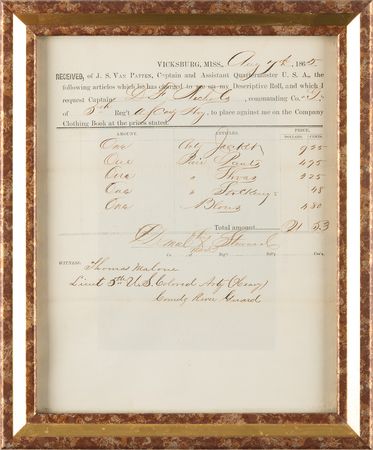 VICKSBURG, MISS., Aug 9th, 1865
RECEIVED, of J. S. VAN PATTEN, Captain and Assistant Quartermaster U. S. A., the
following articles which he has charged to me on my Descriptive Roll, and which I
request Captain D. F. Nichols, commanding Co.
of 5th Reg't, to place against me on the Company
Clothing Book at the prices stated.
AMOUNT. ARTICLES. PRICE,
DOLLARS. CENTS.
One Jacket 9 55
One Pair Pants 4 75
One " Shoes 2 25
One " Stockings 48
One Blouse 4 80
Total amount 21 83
his
mark
Co. Reg't
WITNESS:
Thomas Malone
Lieut 5th U.S. Colored Arty (Heavy)
Comdg River Guard